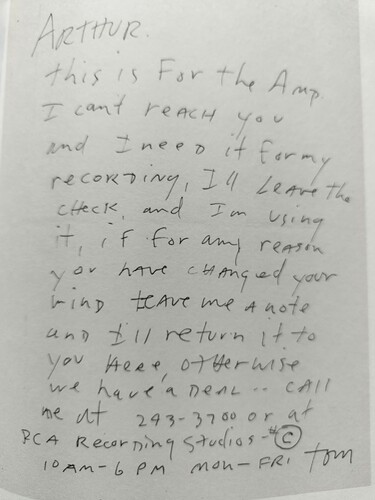 ARTHUR.
this is For the Amp
I can't reach you
and I need it for my
recording, I'll leave the
check, and I'm using
it, if for any reason
you have changed your
mind leave me a note
and I'll return it to
you Here, otherwise
we have a Deal -- call
me at 293-3700 or at
RCA Recording Studios - "C"
10 AM - 6 PM Mon - Fri Tom